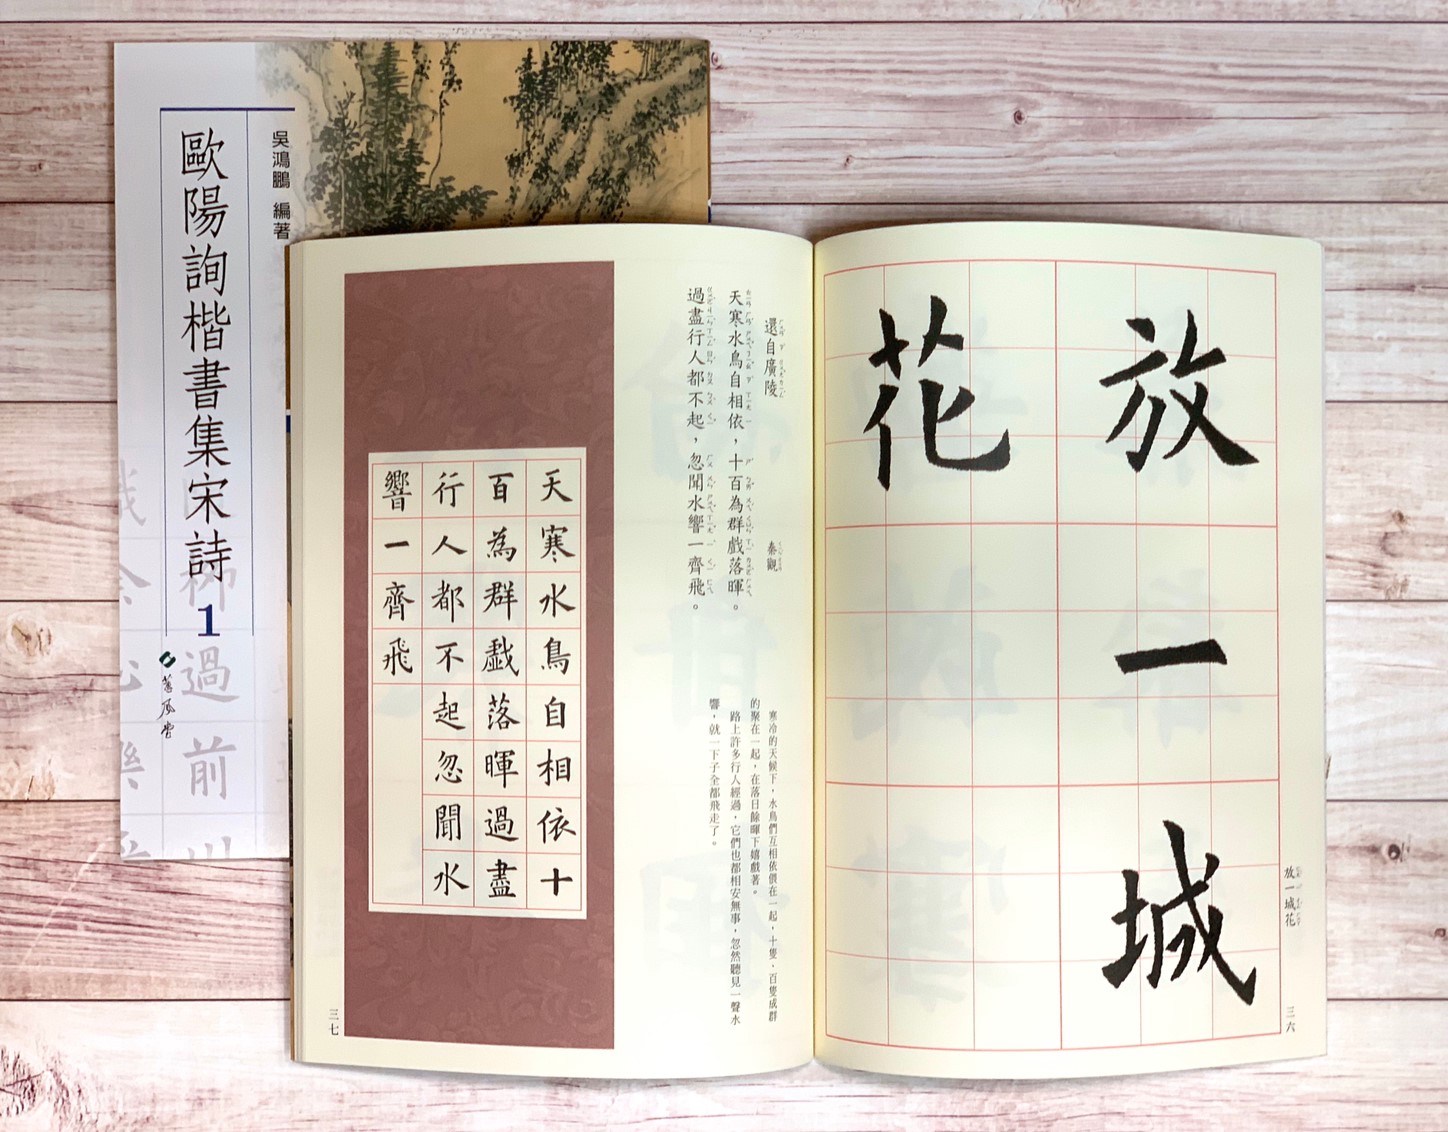 歐陽詢楷書集宋詩
1
吳鴻鵬 編著
舊風堂
過
前
放一城
花
放一城花
三六
還自廣陵
秦觀
天寒水鳥自相依，十百為群戲落暉。
過盡行人都不起，忽聞水響一齊飛。
寒冷的天候下，水鳥們互相依偎在一起，十隻、百隻成群
的聚在一起，在落日餘暉下嬉戲著。
路上許多行人經過，它們也都相安無事，忽然聽見一聲水
響，就一下子全都飛走了。
天寒水鳥自相依十
百為群戲落暉過盡
行人都不起忽聞水
響一齊飛
三七